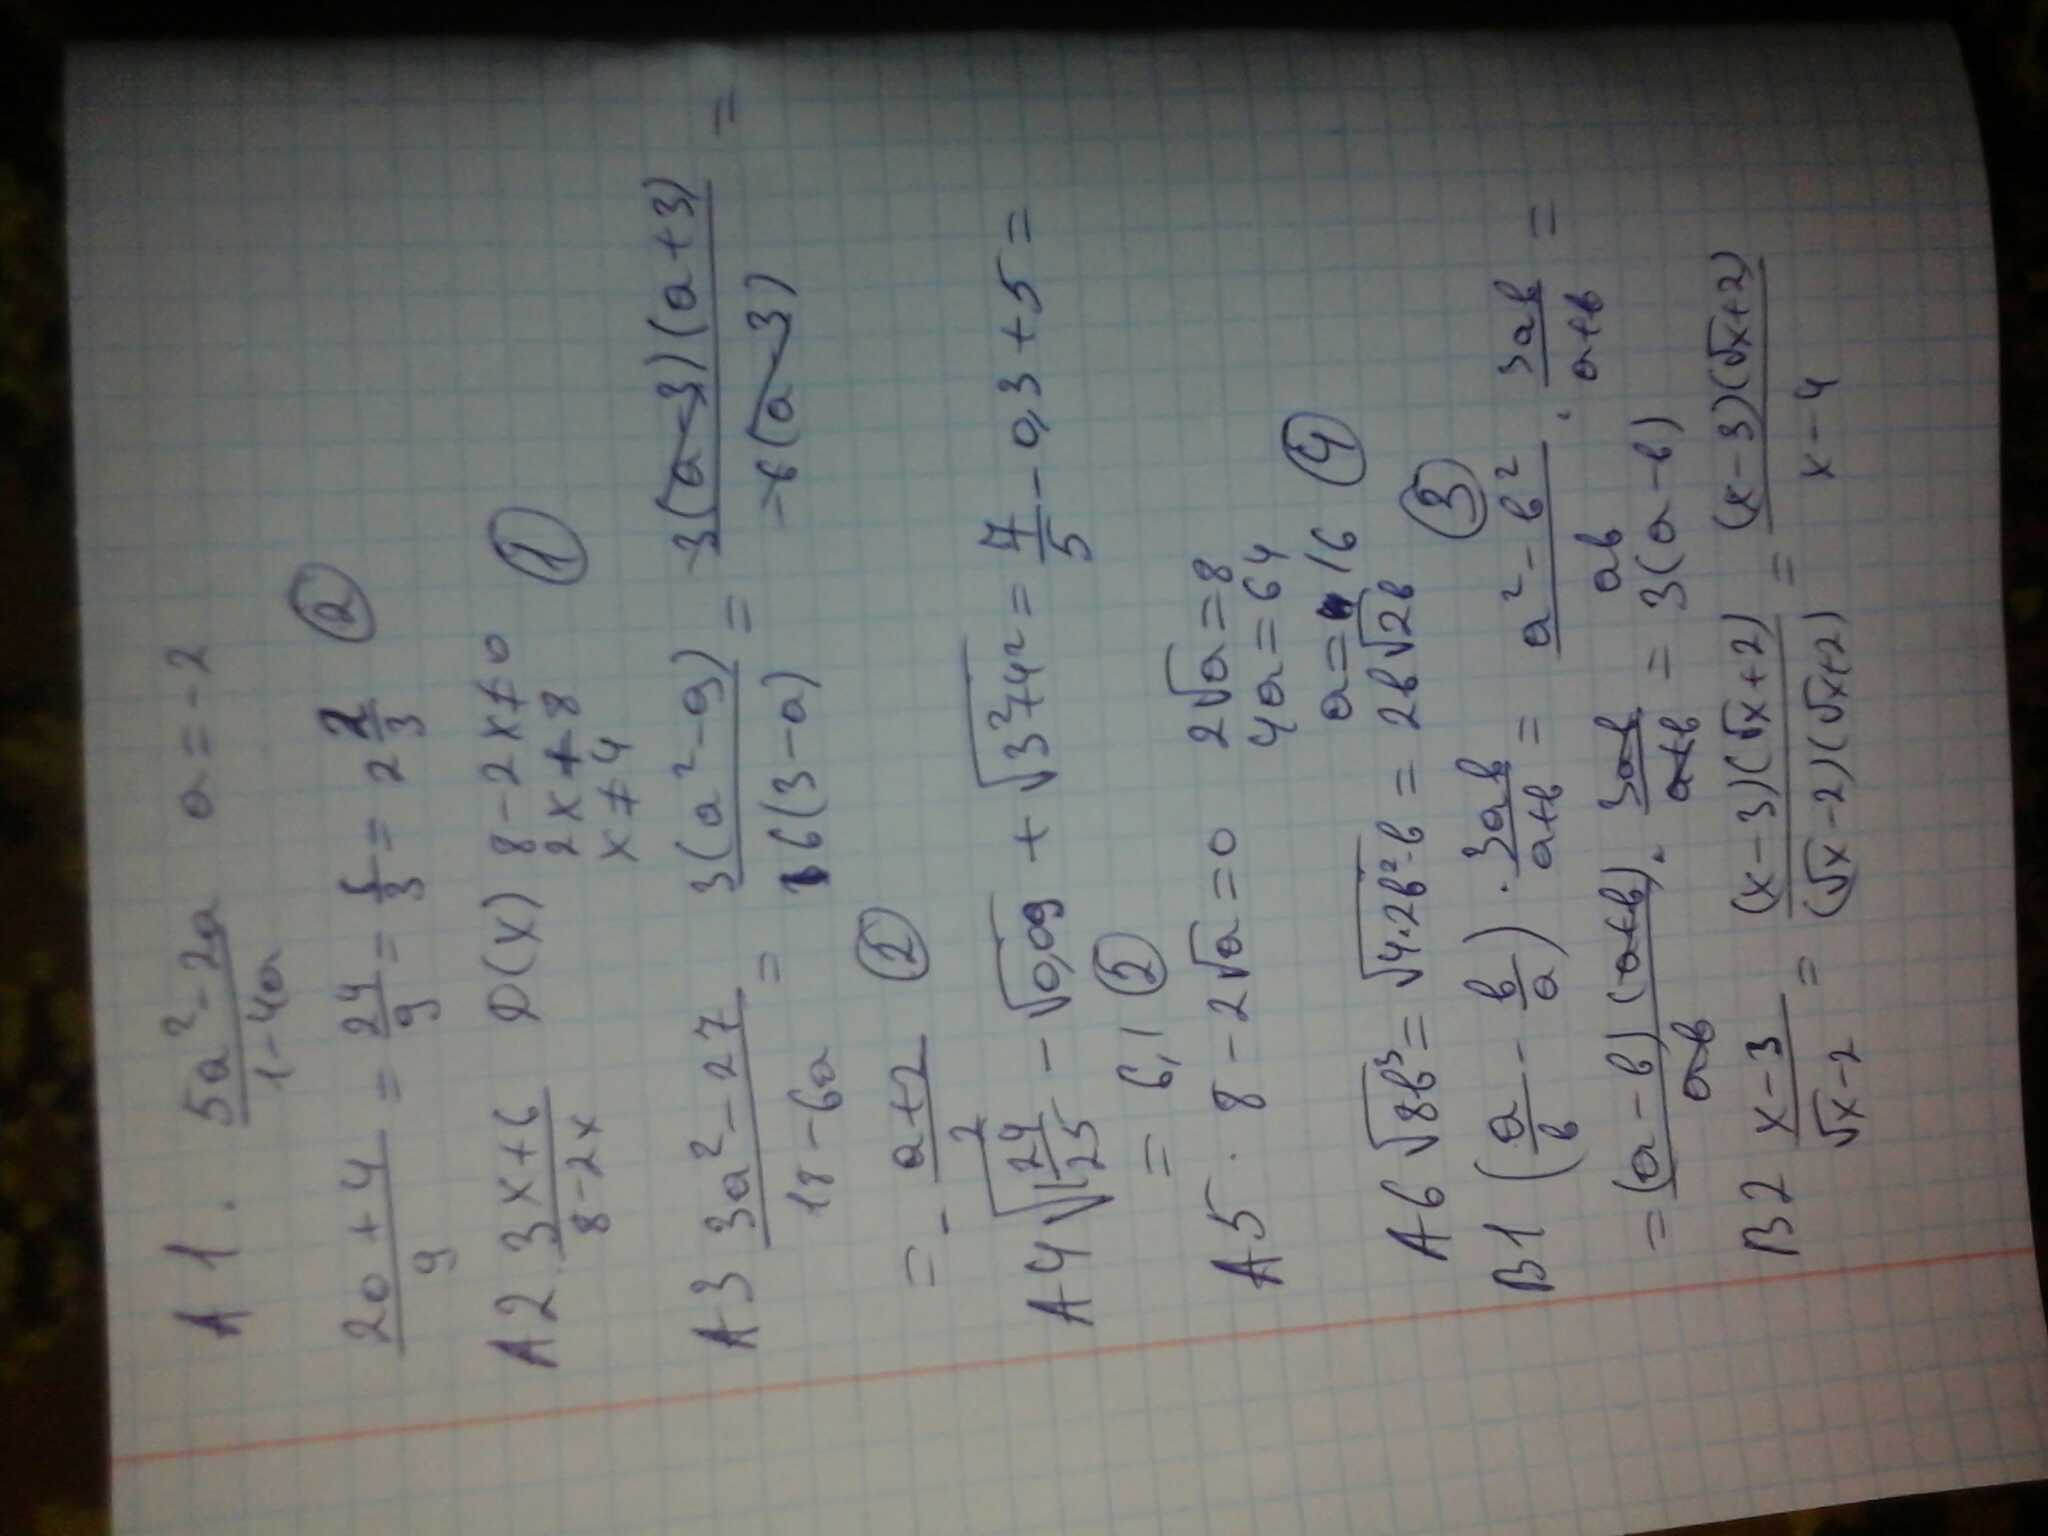 A 1. (5a² - 2a)/(1 - 4a) a = -2
(20 + 4)/9 = 24/9 = 8/3 = 2 2/3 ②
A 2. (3x + 6)/(8 - 2x) D(x) 8 - 2x ≠ 0
2x ≠ 8
x ≠ 4 ①
A 3 (3a² - 27)/(18 - 6a) = 3(a² - 9)/6(3 - a) = 3(a - 3)(a + 3)/-6(a - 3) =
= - (a + 2)/2 ②
A 4 √(1 24/25) - √0,09 + √(3² + 4²) = 7/5 - 0,3 + 5 =
= 6,1 ②
A 5. 8 - 2√a = 0 2√a = 8
4a = 64
a = 16 ④
A 6 √8b³ = √4·2b²·b = 2b√2b ③
B1 (a/b - b/a) · 3ab/(a+b) = (a² - b²)/ab · 3ab/(a+b) =
= (a - b)(a+b)/ab · 3ab/(a+b) = 3(a - b)
B2 (x - 3)/(√x - 2) = (x - 3)(√x + 2)/(√x - 2)(√x + 2) = (x - 3)(√x + 2)/(x - 4)